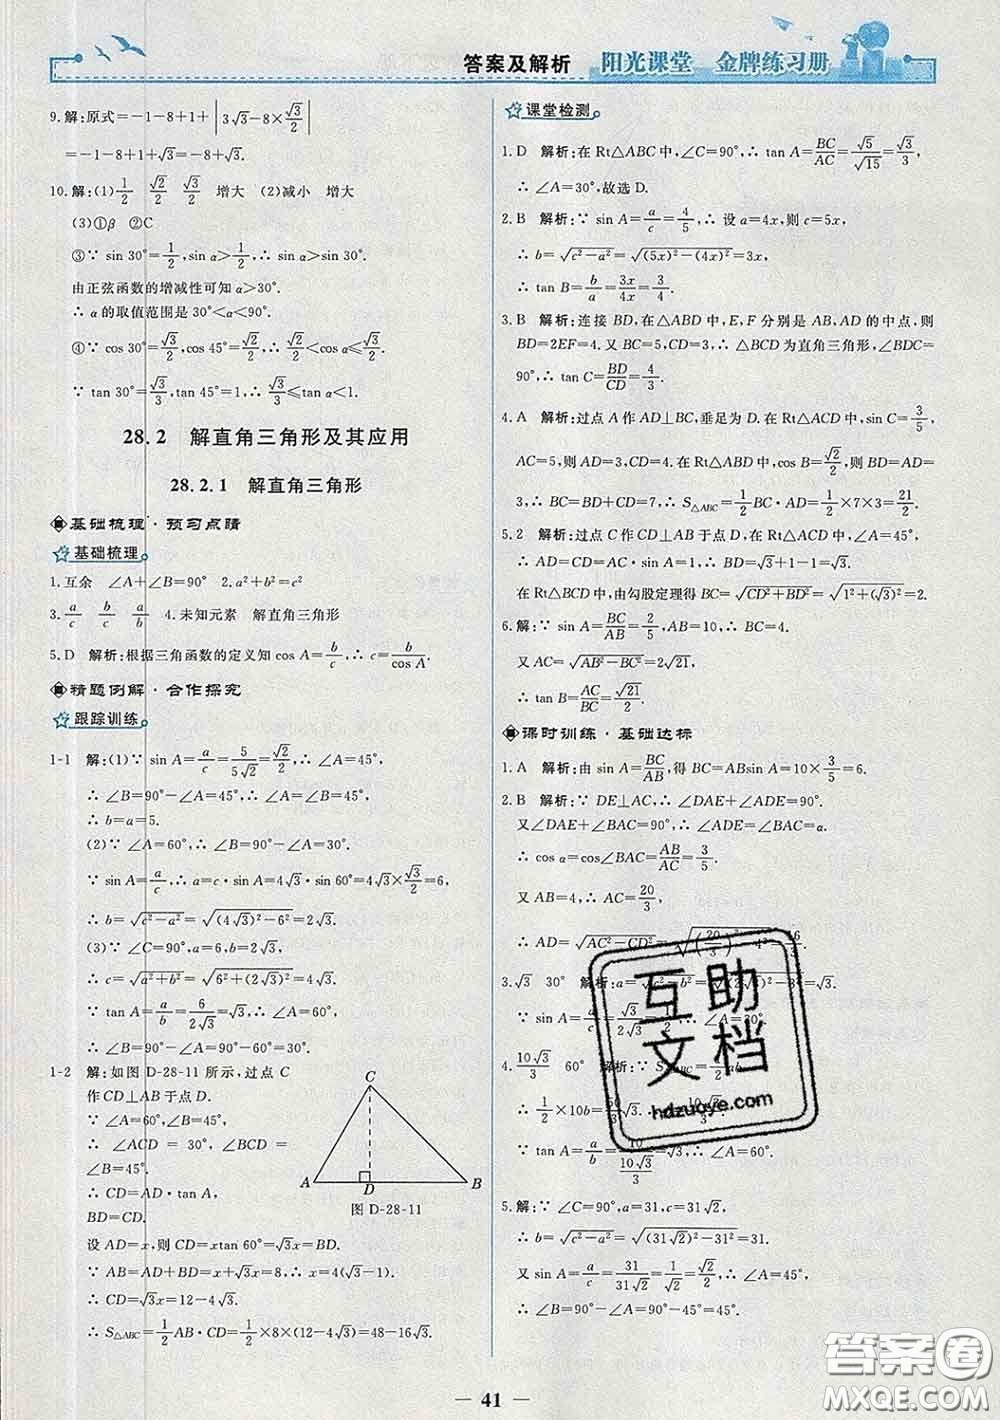 答案及解析 阳光课堂 金牌练习册
9.解:原式=-1-8+1+|3√3-8×√3/2|
=-1-8+1+√3=-8+√3.
10.解:(1)1/2 √2/2 √3/2 增大 (2)减小 增大
(3)①β ②C
③∵ sin 30°=1/2,sin α>1/2,∴ sin α>sin 30°.
由正弦函数的增减性可知 α>30°.
∴ α 的取值范围是 30°<α<90°.
④∵ cos 30°=√3/2,cos 45°=√2/2,∴ √2/2<cos α≤√3/2.
∵ tan 30°=√3/3,tan 45°=1,∴ √3/3≤tan α<1.
28.2 解直角三角形及其应用
28.2.1 解直角三角形
基础梳理·预习点睛
基础梳理
1.互余 ∠A+∠B=90° 2.a²+b²=c²
3.a/c b/c a/b 4.未知元素 解直角三角形
5.D 解析:根据三角函数的定义知 cos A=b/c,∴ c=b/cos A.
精题例解·合作探究
跟踪训练
1-1 解:(1)∵ sin A=a/c=5/5√2=√2/2,∴ ∠A=45°,
∴ ∠B=90°-∠A=45°,∴ ∠A=∠B=45°,
∴ b=a=5.
(2)∵ ∠A=60°,∴ ∠B=90°-∠A=30°.
∵ sin A=a/c,∴ a=c·sin A=4√3·sin 60°=4√3×√3/2=6,
∴ b=√(c²-a²)=√((4√3)²-6²)=2√3.
(3)∵ ∠C=90°,a=6,b=2√3,
∴ c=√(a²+b²)=√(6²+(2√3)²)=4√3.
∵ tan A=a/b=6/2√3=√3,∴ ∠A=60°,
∴ ∠B=90°-∠A=90°-60°=30°.
1-2 解:如图 D-28-11 所示,过点 C
作 CD⊥AB 于点 D.
∵ ∠A=60°,∠B=45°,
∴ ∠ACD = 30°,∠BCD =
∠B=45°.
∴ CD=AD·tan A,
BD=CD.
C
A
D
B
图 D-28-11
设 AD=x,则 CD=xtan 60°=√3x=BD.
∵ AB=AD+BD=x+√3x=8,∴ x=4√3-4.
∴ CD=√3x=12-4√3.
∴ S△ABC=1/2 AB·CD=1/2×8×(12-4√3)=48-16√3.
课堂检测
1.D 解析:在 Rt△ABC 中,∠C=90°,∴ tan A=BC/AC=√5/√15=√3/3,
∴ ∠A=30°,故选 D.
2.B 解析:∵ sin A=a/c=4/5,∴ 设 a=4x,则 c=5x,
∴ b=√(c²-a²)=√((5x)²-(4x)²)=3x,
∴ tan B=b/a=3x/4x=3/4.
3.B 解析:连接 BD,在△ABD 中,E,F 分别是 AB,AD 的中点,则
BD=2EF=4.又 BC=5,CD=3,∴ △BCD 为直角三角形,∠BDC=
90°,∴ tan C=BD/CD=4/3.
4.A 解析:过点 A 作 AD⊥BC,垂足为 D.在 Rt△ACD 中,sin C=3/5,
AC=5,则 AD=3,∴ CD=4.在 Rt△ABD 中,cos B=√2/2,则 BD=AD=
3,∴ BC=BD+CD=7,∴ S△ABC=1/2 BC·AD=1/2×7×3=21/2.
5.2 解析:过点 C 作 CD⊥AB 于点 D,在 Rt△ACD 中,∠A=45°,
∴ AD=CD=AC·sin 45°=1,∴ BD=√3+1-1=√3.
在 Rt△BCD 中,由勾股定理得 BC=√(CD²+BD²)=√(1²+(√3)²)=2.
6.解:∵ sin A=BC/AB=2/5,AB=10,∴ BC=4.
又 AC=√(AB²-BC²)=2√21,
∴ tan B=AC/BC=√21/2.
课时训练·基础达标
1.A 解析:由 sin A=BC/AB,得 BC=ABsin A=10×3/5=6.
2.B 解析:∵ DE⊥AC,∴ ∠DAE+∠ADE=90°.
又∠DAE+∠BAC=90°,∴ ∠ADE=∠BAC=α.
∴ cos α=cos∠BAC=AB/AC=3/5.
又 AB=4,∴ AC=20/3.
∴ AD=√(AC²-CD²)=
3.√3 30° 解析:a=
∵ sin A=
4.10√3/3 60° 解析:∵ S△ABC
∴ 1/2×10b=
∵ tan A=a/b=
5.解:∵ ∠C=90°,a=31,c=31√2,
∴ b=√(c²-a²)=√((31√2)²-31²)=31.
又 sin A=a/c=31/31√2=1/√2=√2/2,∴ ∠A=45°,
∴ ∠B=90°-∠A=90°-45°=45°.
互助文档
hdzuoye.com
答案圈
MXQE.COM
41